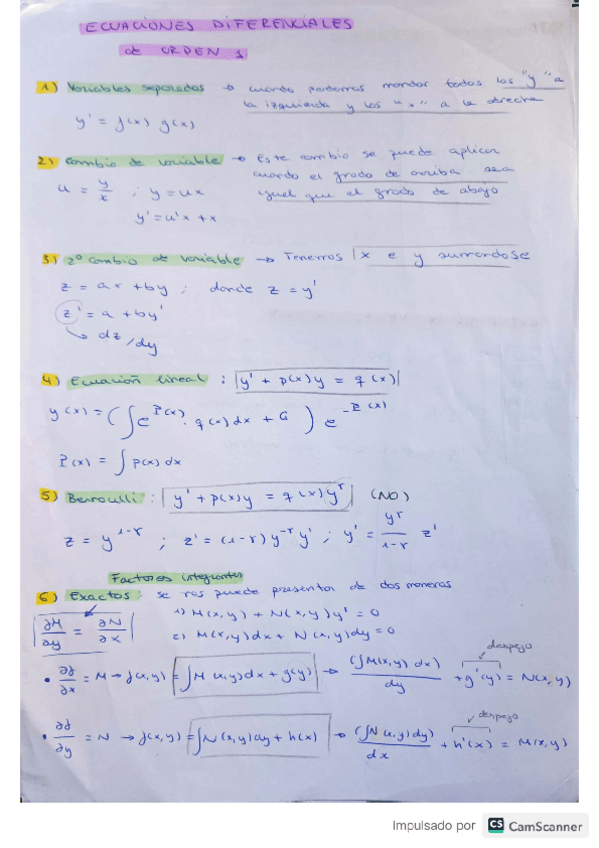 ECUACIONES DIFERENCIALES
de ORDEN 1
1) Variables separadas → cuando podamos mandar todos los "y" a
la izquierda y los "x" a la derecha
y' = f(x) g(x)
2) Cambio de variable → Este cambio se puede aplicar
cuando el grado de arriba sea
igual que el grado de abajo
u = y/x ; y = ux
y' = u'x + x
3) 2º cambio de variable → Tenemos x e y sumandose
z = ax + by ; donde z = y'
z' = a + by'
↳ dz/dy
4) Ecuación lineal : y' + p(x)y = q(x)
y(x) = (∫e^P(x) · q(x)dx + G) e^-P(x)
P(x) = ∫ p(x) dx
5) Bernoulli : y' + p(x)y = q(x)y^r (NO)
z = y^1-r ; z' = (1-r) y^-r y' ; y' = y^r/1-r z'
Factores integrantes
6) Exactas : se nos puede presentar de dos maneras
∂M/∂y = ∂N/∂x
1) M(x,y) + N(x,y)y' = 0
2) M(x,y)dx + N(x,y)dy = 0
despejo
• ∂f/∂x = M → f(x,y) = ∫M(x,y)dx + g(y) → (∫M(x,y) dx)/dy + g'(y) = N(x,y)
despejo
• ∂f/∂y = N → f(x,y) = ∫N(x,y)dy + h(x) → (∫N(x,y)dy)/dx + h'(x) = M(x,y)
Impulsado por CS CamScanner